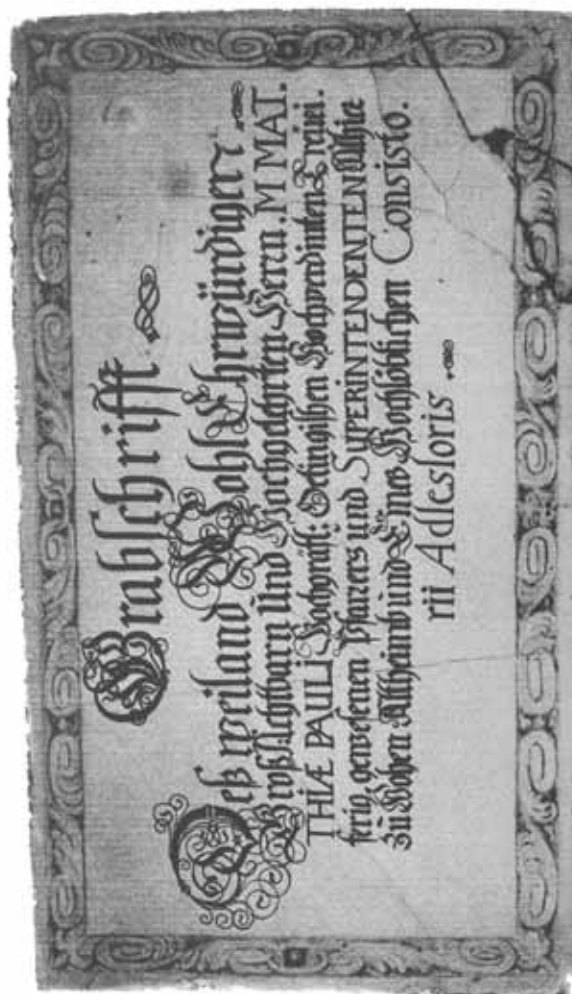 Grabschrifft
Deß weiland Wohl Ehrwürdigen
Großachtbarn Und Hochgelehrten Herrn. M MAT.
THIÆ PAULI Hochgräfl: Oetingischen Hochverdinten Treuei.
ferig gewesenen Pfarrers und SUPERINTENDENTEN Alhier
Zu Hohen Altheimb und Eines Hochlöblichen Consisto.
rii Adsessoris